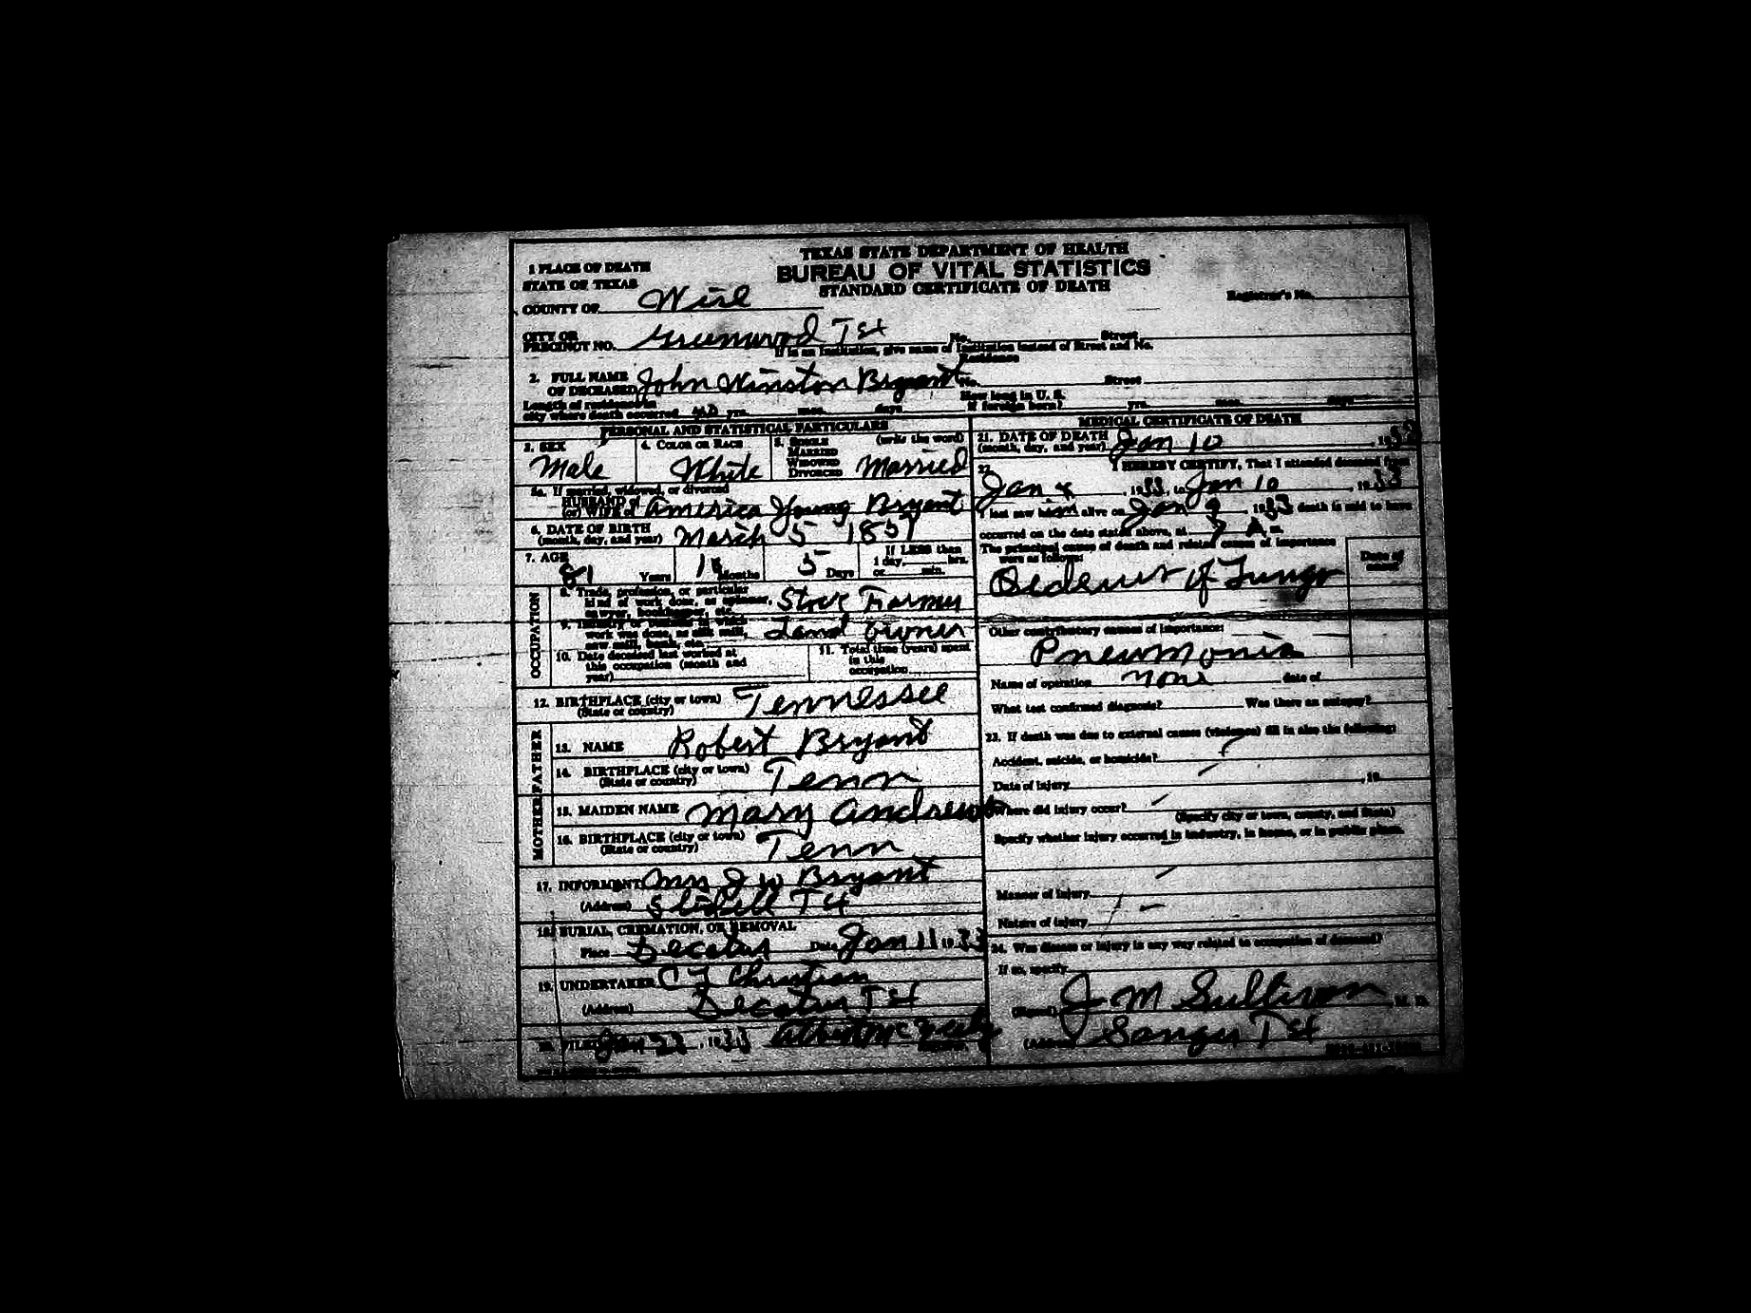 TEXAS STATE DEPARTMENT OF HEALTH
BUREAU OF VITAL STATISTICS
STANDARD CERTIFICATE OF DEATH
1 PLACE OF DEATH
STATE OF TEXAS
COUNTY OF Wise
Registrar's No.
CITY OR
PRECINCT NO. Greenwood Tex No. Street
If in an institution, give name of institution instead of Street and No.
Residence
2. FULL NAME
OF DECEASED John Winston Bryant No. Street
Length of residence in
city where death occurred yrs. mos. days
How long in U. S.
if foreign born? yrs. mos. days
PERSONAL AND STATISTICAL PARTICULARS
3. SEX
Male
4. COLOR OR RACE
White
5. SINGLE
MARRIED
WIDOWED
DIVORCED
(write the word)
Married
5a. If married, widowed, or divorced
HUSBAND of
(or) WIFE of America Young Bryant
6. DATE OF BIRTH
(month, day, and year) March 5
7. AGE
81 Years Months 5 Days
If LESS than
1 day, hrs.
or min.
OCCUPATION
8. Trade, profession, or particular
kind of work done, as spinner,
sawyer, bookkeeper, etc. Stock Farmer
9. Industry or business in which
work was done, as silk mill,
saw mill, bank, etc. Land owner
10. Date deceased last worked at
this occupation (month and
year)
11. Total time (years) spent
in this
occupation
12. BIRTHPLACE (city or town)
(State or country) Tennessee
FATHER
13. NAME Robert Bryant
14. BIRTHPLACE (city or town)
(State or country) Tenn
MOTHER
15. MAIDEN NAME Mary Andrews
16. BIRTHPLACE (city or town)
(State or country) Tenn
17. INFORMANT Mrs J W Bryant
(Address) Slidell Tex
18. BURIAL, CREMATION, OR REMOVAL
Place Decatur Date Jan 11 1933
19. UNDERTAKER Christian
(Address) Decatur Tex
20. FILED
MEDICAL CERTIFICATE OF DEATH
21. DATE OF DEATH
(month, day, and year) Jan 10, 1933
22. I HEREBY CERTIFY, That I attended deceased from
Jan, 1933, to Jan 10, 1933
I last saw him alive on Jan 9, 1933 death is said to have
occurred on the date stated above, at A. m.
The principal causes of death and related causes of importance
were as follows:
Date of
onset
of Lungs
Other contributory causes of importance:
Pneumonia
Name of operation none date of
What test confirmed diagnosis? Was there an autopsy?
23. If death was due to external causes (violence) fill in also the following:
Accident, suicide, or homicide?
Date of injury, 19
Where did injury occur?
(Specify city or town, county, and State)
Specify whether injury occurred in industry, in home, or in public place.
Manner of injury
Nature of injury
24. Was disease or injury in any way related to occupation of deceased?
If so, specify
(Signed) J M Sullivan M. D.
(Address) Sanger Tex